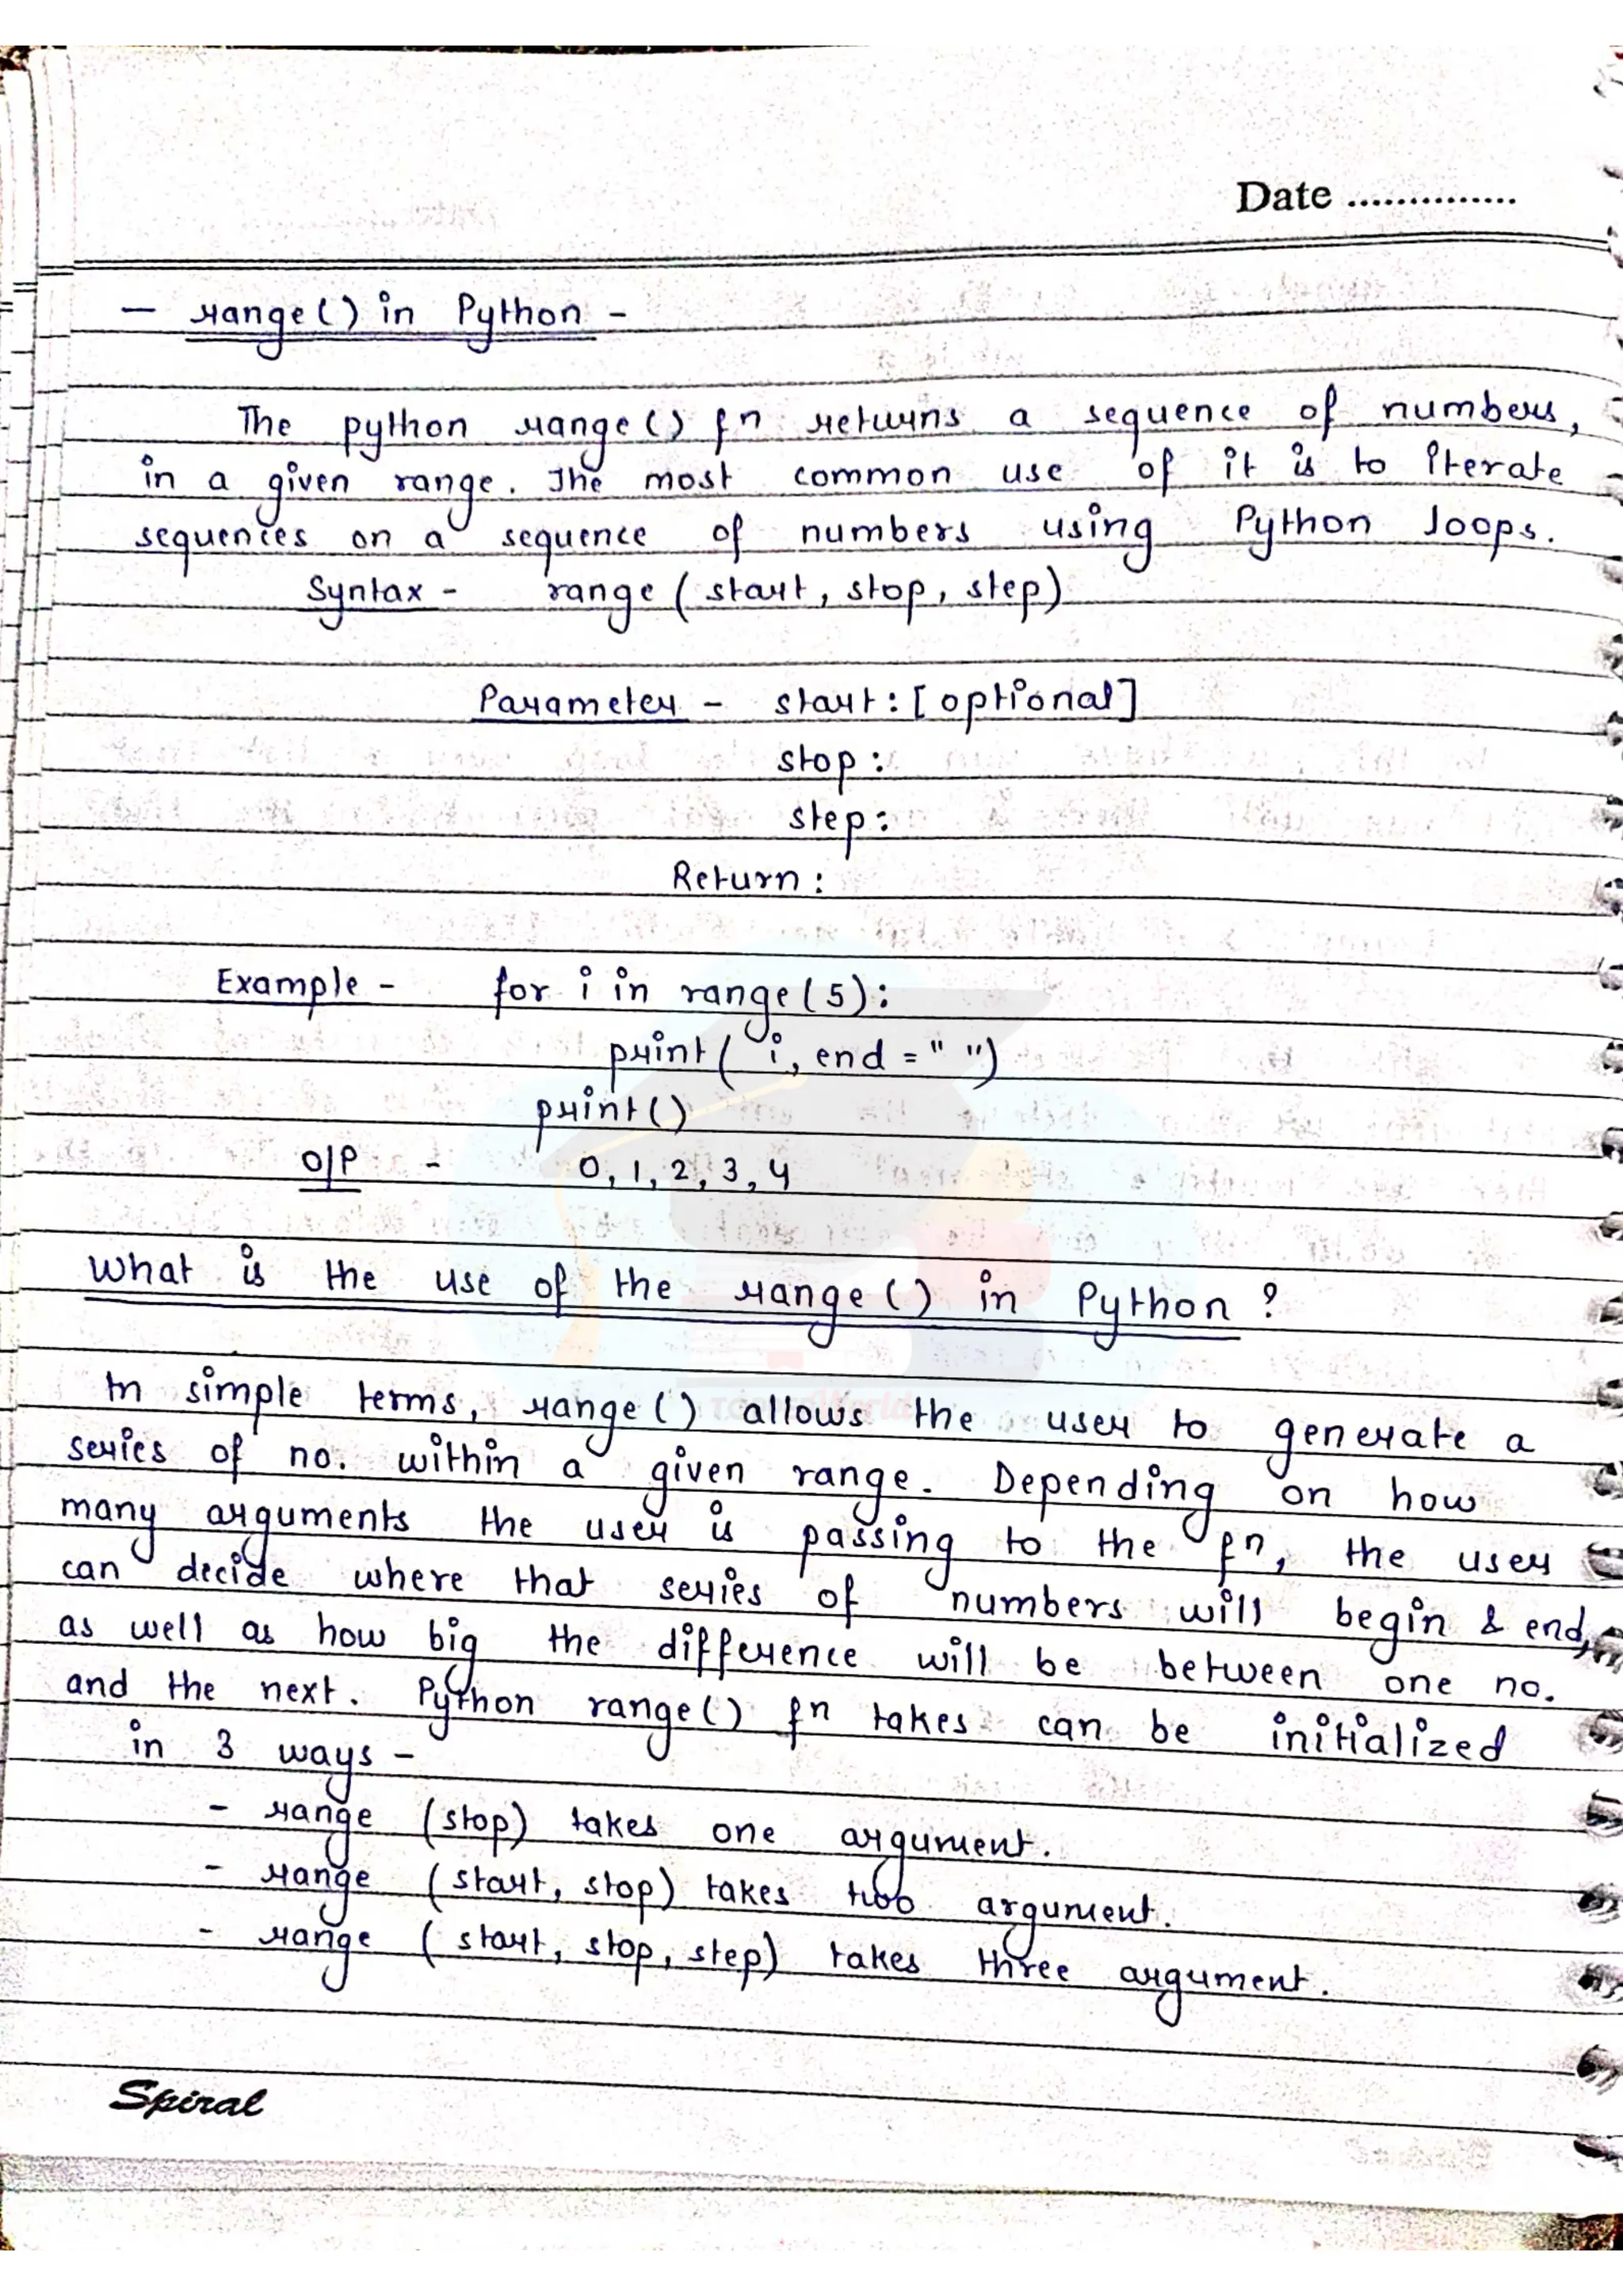 Date ...............
— range() in Python -
The python range() fn returns a sequence of numbers,
in a given range. The most common use of it is to iterate
sequences on a sequence of numbers using Python loops.
Syntax - range (start, stop, step)
Parameter - start: [optional]
stop:
step:
Return:
Example - for i in range(5):
print( i, end = " ")
print()
O/P - 0, 1, 2, 3, 4
What is the use of the range() in Python?
In simple terms, range() allows the user to generate a
series of no. within a given range. Depending on how
many arguments the user is passing to the fn, the user
can decide where that series of numbers will begin & end,
as well as how big the difference will be between one no.
and the next. Python range() fn takes can be initialized
in 3 ways -
- range (stop) takes one argument.
- range (start, stop) takes two argument.
- range (start, stop, step) takes three argument.
Spiral